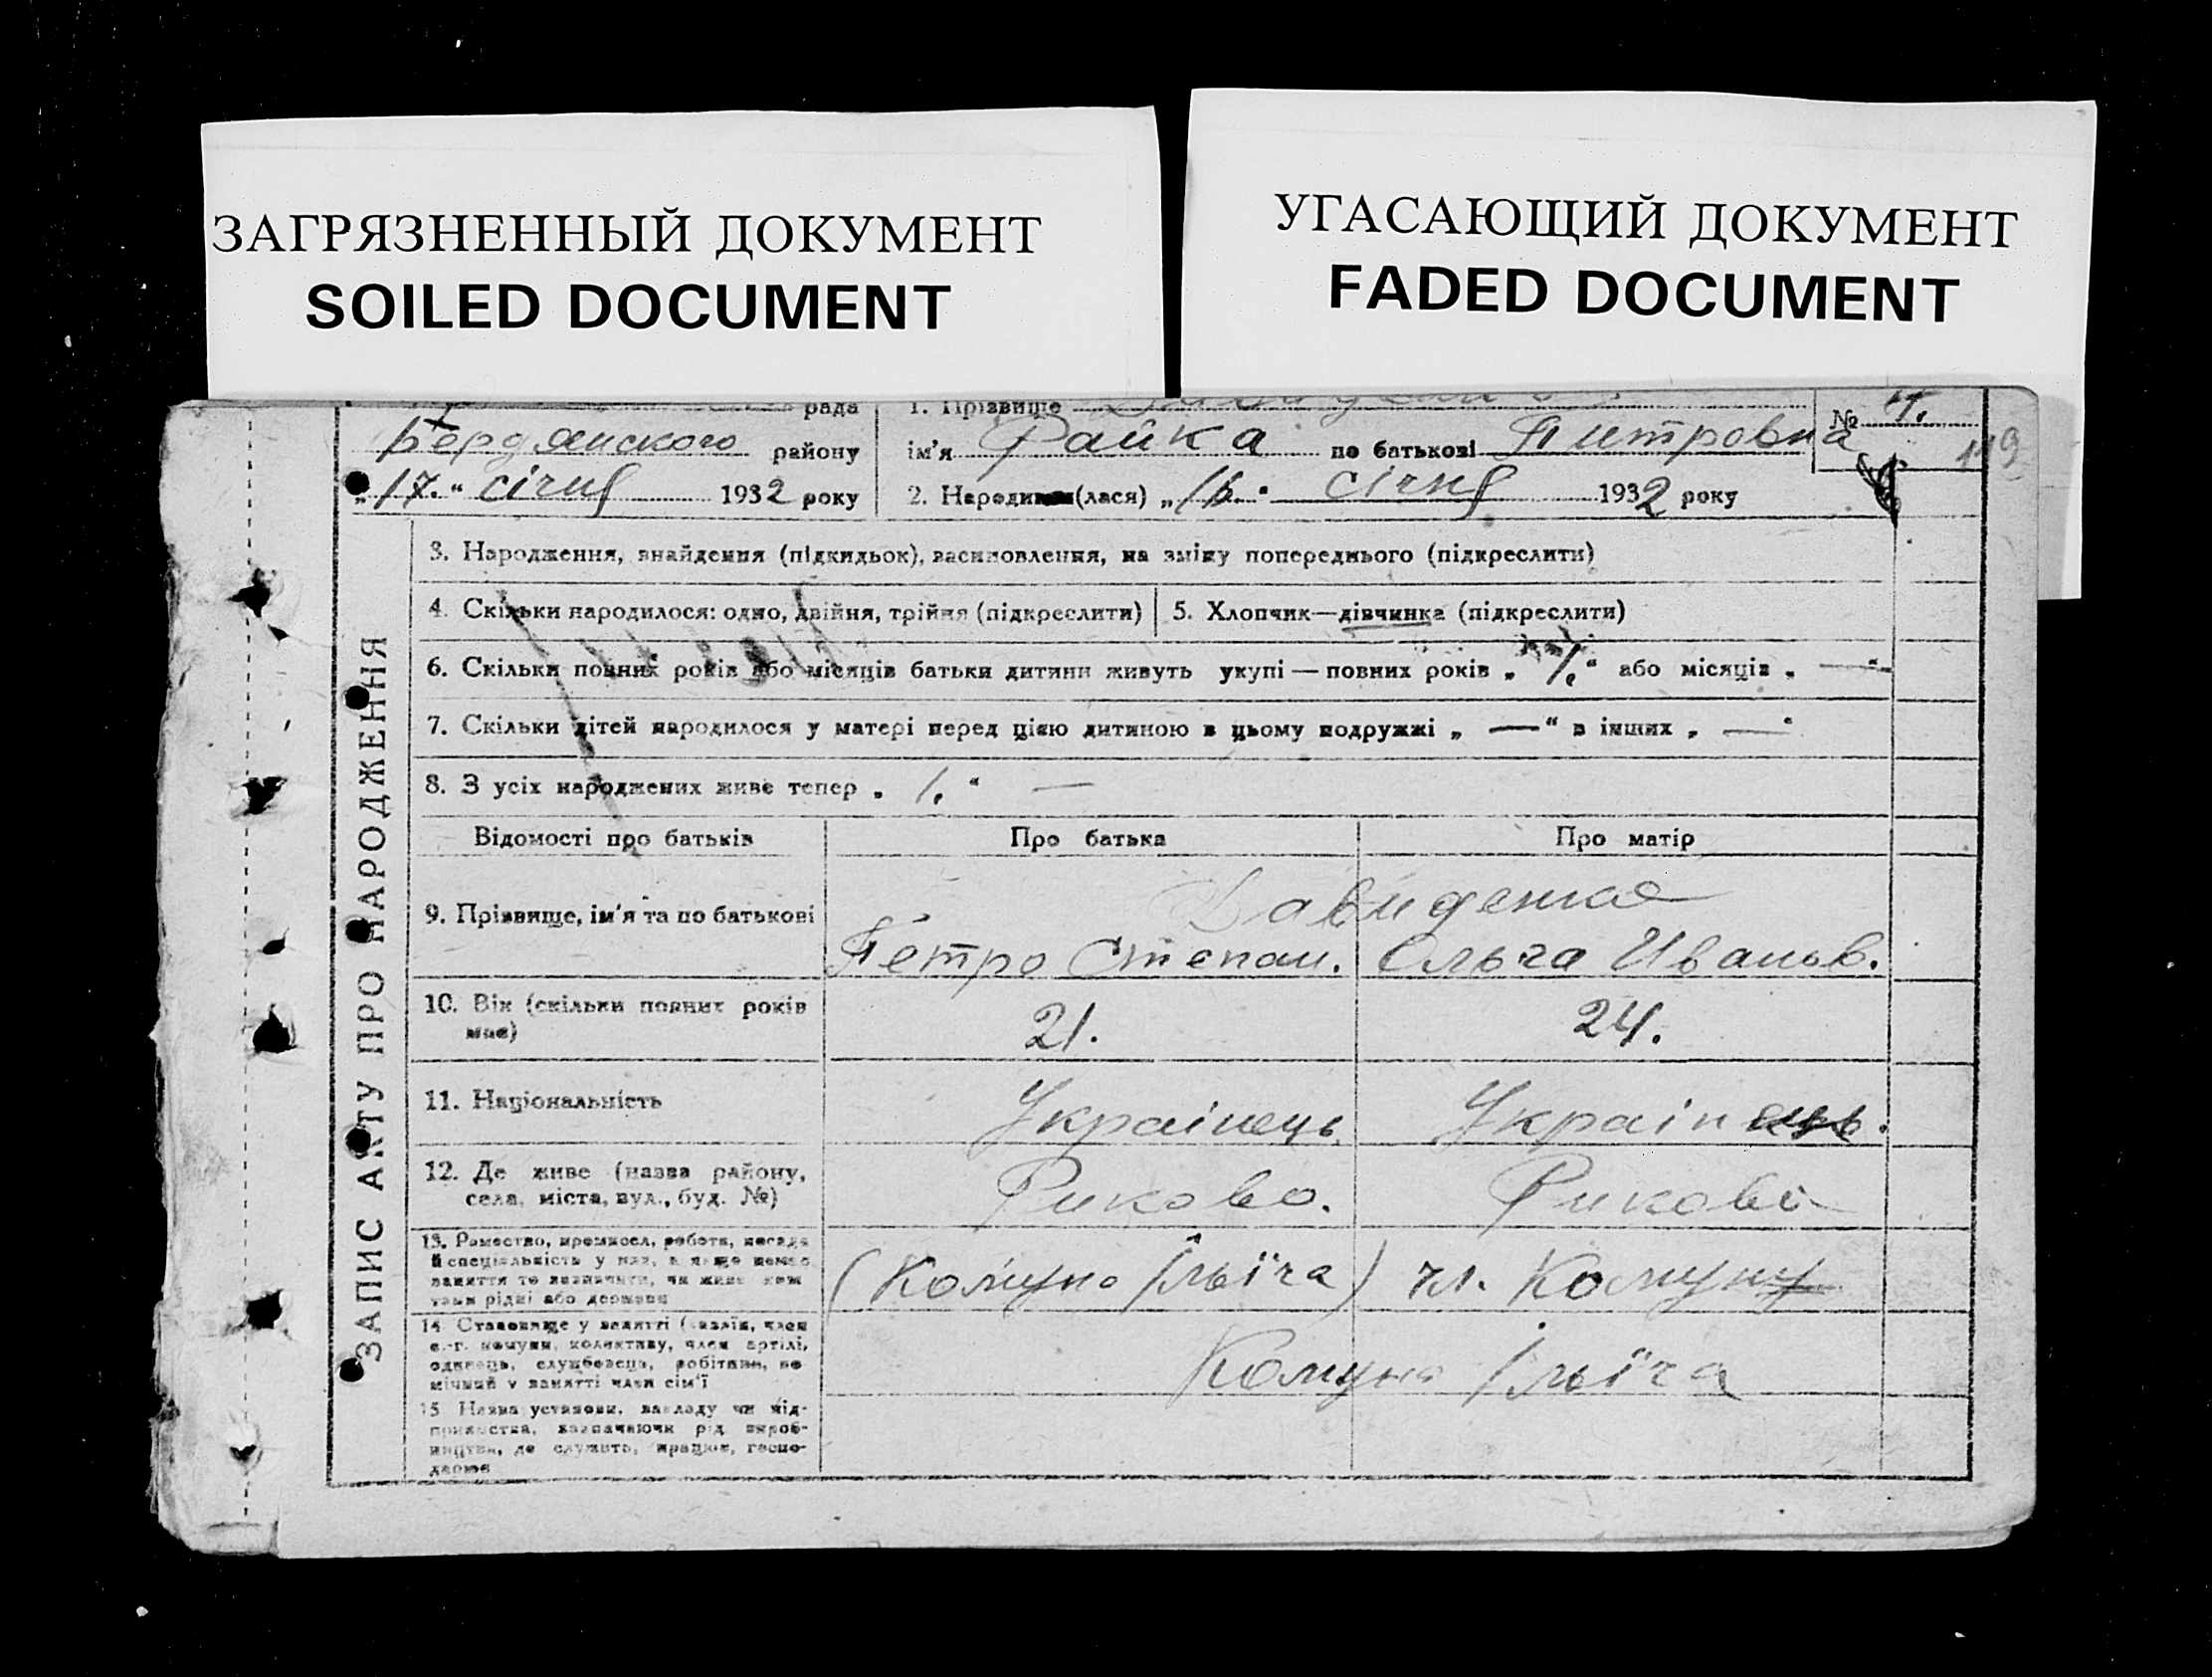 ЗАГРЯЗНЕННЫЙ ДОКУМЕНТ
SOILED DOCUMENT
УГАСАЮЩИЙ ДОКУМЕНТ
FADED DOCUMENT
рада
Бердянського району
„17.“ січня 1932 року
1. Прізвище
ім'я Райка по батькові Питровна
2. Народи (лася) „16.“ січня 1932 року
№ 4.
119
ЗАПИС АКТУ ПРО НАРОДЖЕННЯ
3. Народження, знайдення (підкидьок), засиновлення, на зміну попереднього (підкреслити)
4. Скільки народилося: одно, двійня, трійня (підкреслити)
5. Хлопчик—дівчинка (підкреслити)
6. Скільки повних років або місяців батьки дитини живуть укупі — повних років „1.“ або місяців „—“
7. Скільки дітей народилося у матері перед цією дитиною в цьому подружжі „—“ в інших „—“
8. З усіх народжених живе тепер „1.“ —
Відомості про батьків Про батька Про матір
9. Прізвище, ім'я та по батькові
Давиденко
Петро Степан. Ольга Иванов.
10. Вік (скільки повних років має) 21. 24.
11. Національність Українець Українець.
12. Де живе (назва району,
села, міста, вул., буд. №)
Риково. Риково
13. Ремество, промисел, робота, посада
й спеціальність у них, а якщо немає
заняття то зазначити, чи живе кош
тами рідні або держави
(Комуна Ільїча) чл. Комуну
14. Становище у занятті (хазяїн, член
с.-г. комуни, колективу, член артілі,
одинець, службовець, робітник, по
мічний у занятті член сім'ї
Комуна Ільїча
15. Назва установи, закладу чи під-
приємства, зазначаючи рід вироб-
ництва, де служить, працює, госпо-
дарює